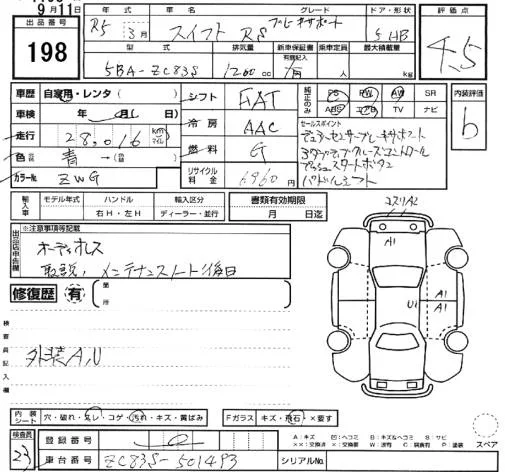 9月11日
出品番号
198
年式
グレード
ドア・形状
評価点
R5
3月
スイフト RS
5 HB
型式
排気量
新車保証書
有効記入
乗車定員
最大積載量
5BA-ZC83S
1200cc
人
kg
4.5
車歴
自家用・レンタ（　　）
シフト
FAT
純正のみ
PS
PW
AW
SR
ABS
エアB
TV
ナビ
内装評価
b
車検
年
月（　日）
冷房
AAC
セールスポイント
デュアルセンサーブレーキサポート
アダプティブクルーズコントロール
プッシュスタートボタン
パドルシフト
走行
28,016
km
マイル
色
青
燃料
G
カラーNo.
ZWG
リサイクル料金
6,960円
輸入車
モデル年式
ハンドル
右H・左H
輸入区分
ディーラー・並行
書類有効期限
月　日迄
出品店申告欄
※注意事項等記載
オーディオレス
取説、メンテナンスノート後日
修復歴
有
箇所
コスリA2
A1
A1
U1
A1
検査員記入欄
外装A,U
内装シート
穴・破れ・スレ・コゲ・汚れ・キズ・黄ばみ
Fガラス
キズ・飛石・×要す
スペア
検査員
23
登録番号
車台番号
ZC83S-501493
シリアルNo.
A：キズ
U：ヘコミ
B：キズ&ヘコミ
S：サビ
××：交換済
×：交換要
W：波有
C：腐蝕有
P：塗装